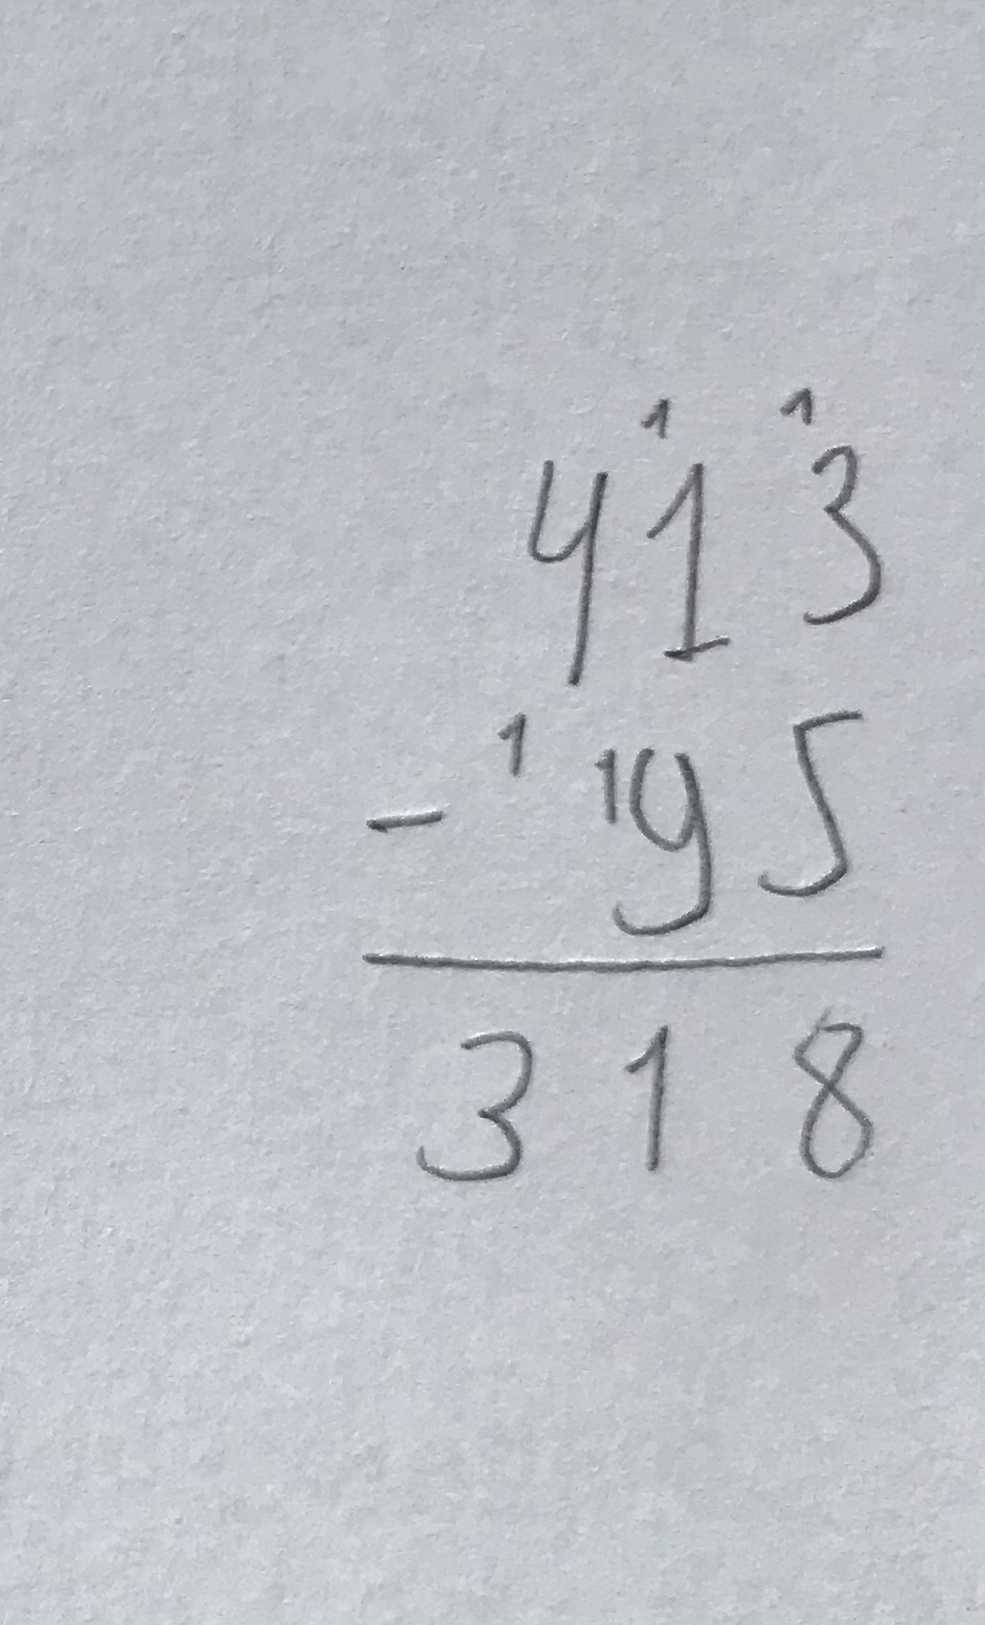 1 1
413
- 1 195
318